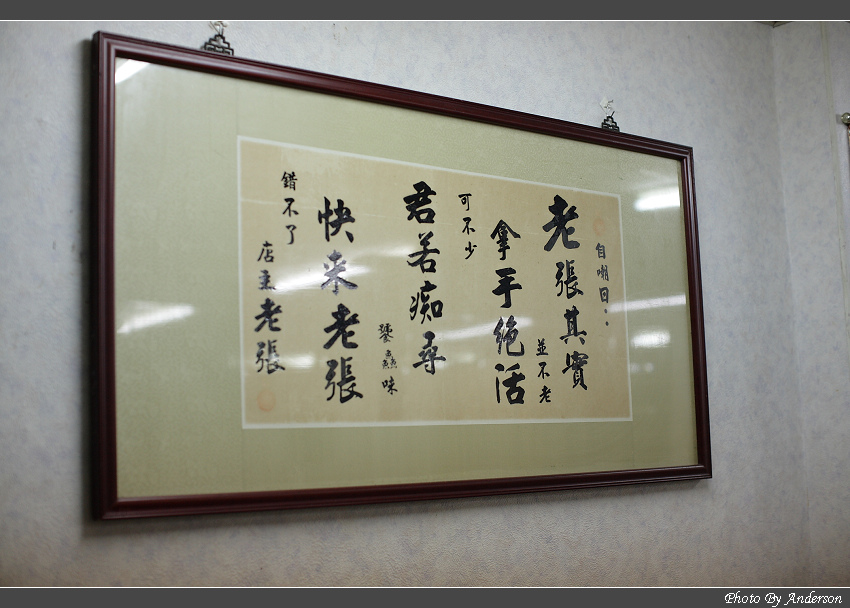 自嘲曰：
老張其實
並不老
拿手絕活
可不少
君若痴尋
饕鱻味
快來老張
錯不了
店主老張
Photo By Anderson